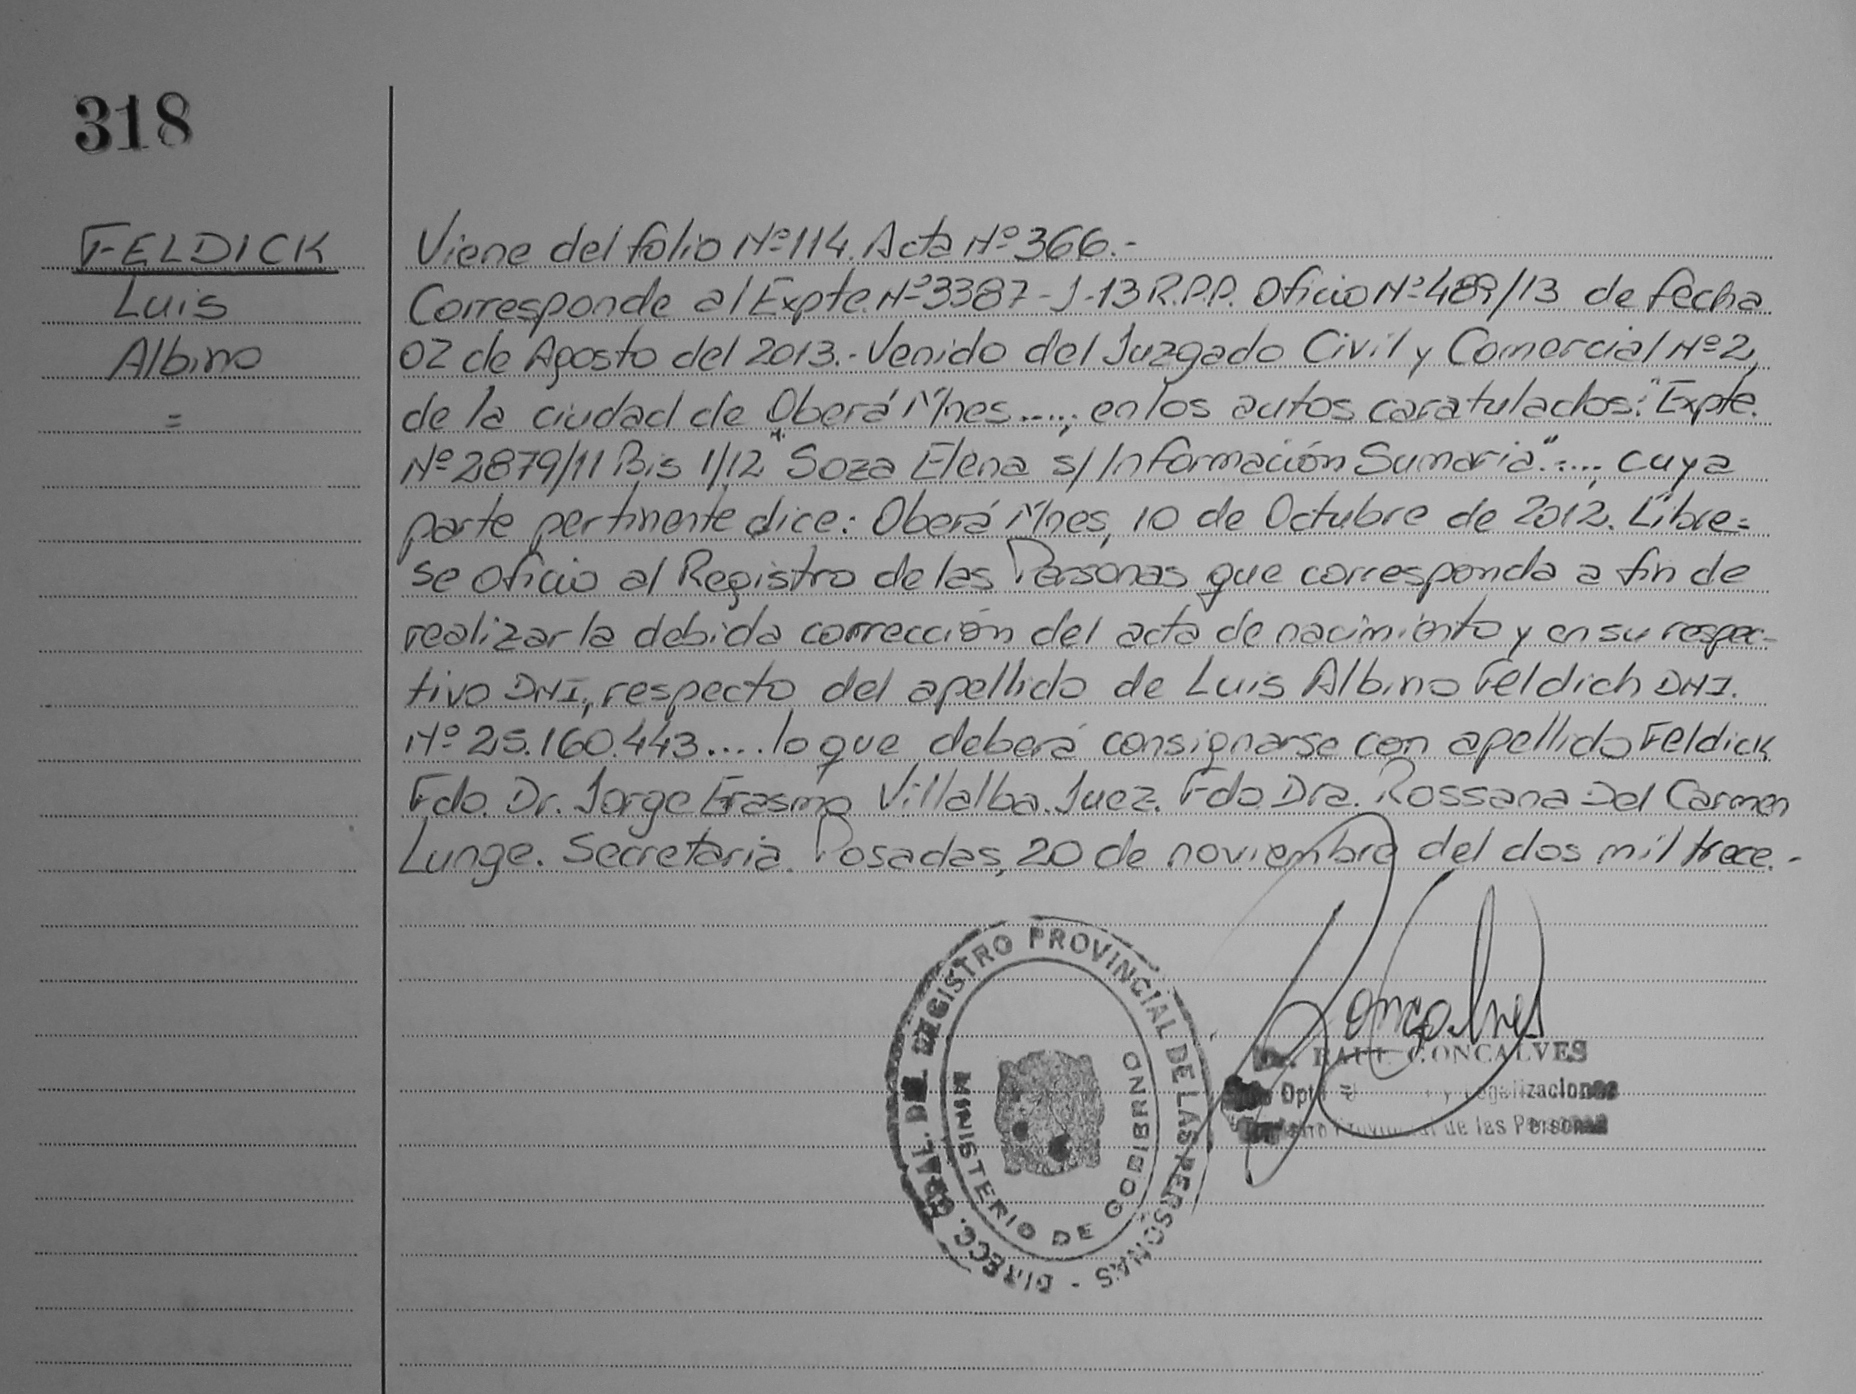 318
FELDICK
Luis
Albino
=
Viene del folio Nº 114. Acta Nº 366.-
Corresponde al Expte. Nº 3387-J-13 R.P.P. Oficio Nº 489/13 de fecha
02 de Agosto del 2013.- Venido del Juzgado Civil y Comercial Nº 2,
de la ciudad de Oberá Mnes....., en los autos caratulados: "Expte.
Nº 2879/11 Bis 1/12 "Soza Elena s/ Información Sumaria"....., cuya
parte pertinente dice: Oberá Mnes, 10 de Octubre de 2012. Líbre=
se oficio al Registro de las Personas que corresponda a fin de
realizar la debida corrección del acta de nacimiento y en su respec-
tivo DNI, respecto del apellido de Luis Albino Feldich DNI.
Nº 25.160.443.... lo que deberá consignarse con apellido Feldick
Fdo. Dr. Jorge Erasmo Villalba. Juez. Fdo. Dra. Rossana Del Carmen
Lunge. Secretaria. Posadas, 20 de noviembre del dos mil trece.-
DIRECC. GRAL. DEL REGISTRO PROVINCIAL DE LAS PERSONAS -
MINISTERIO DE GOBIERNO
Goncalves
RAUL GONCALVES
Dpto y Legalizaciones
Provincial de las Personas